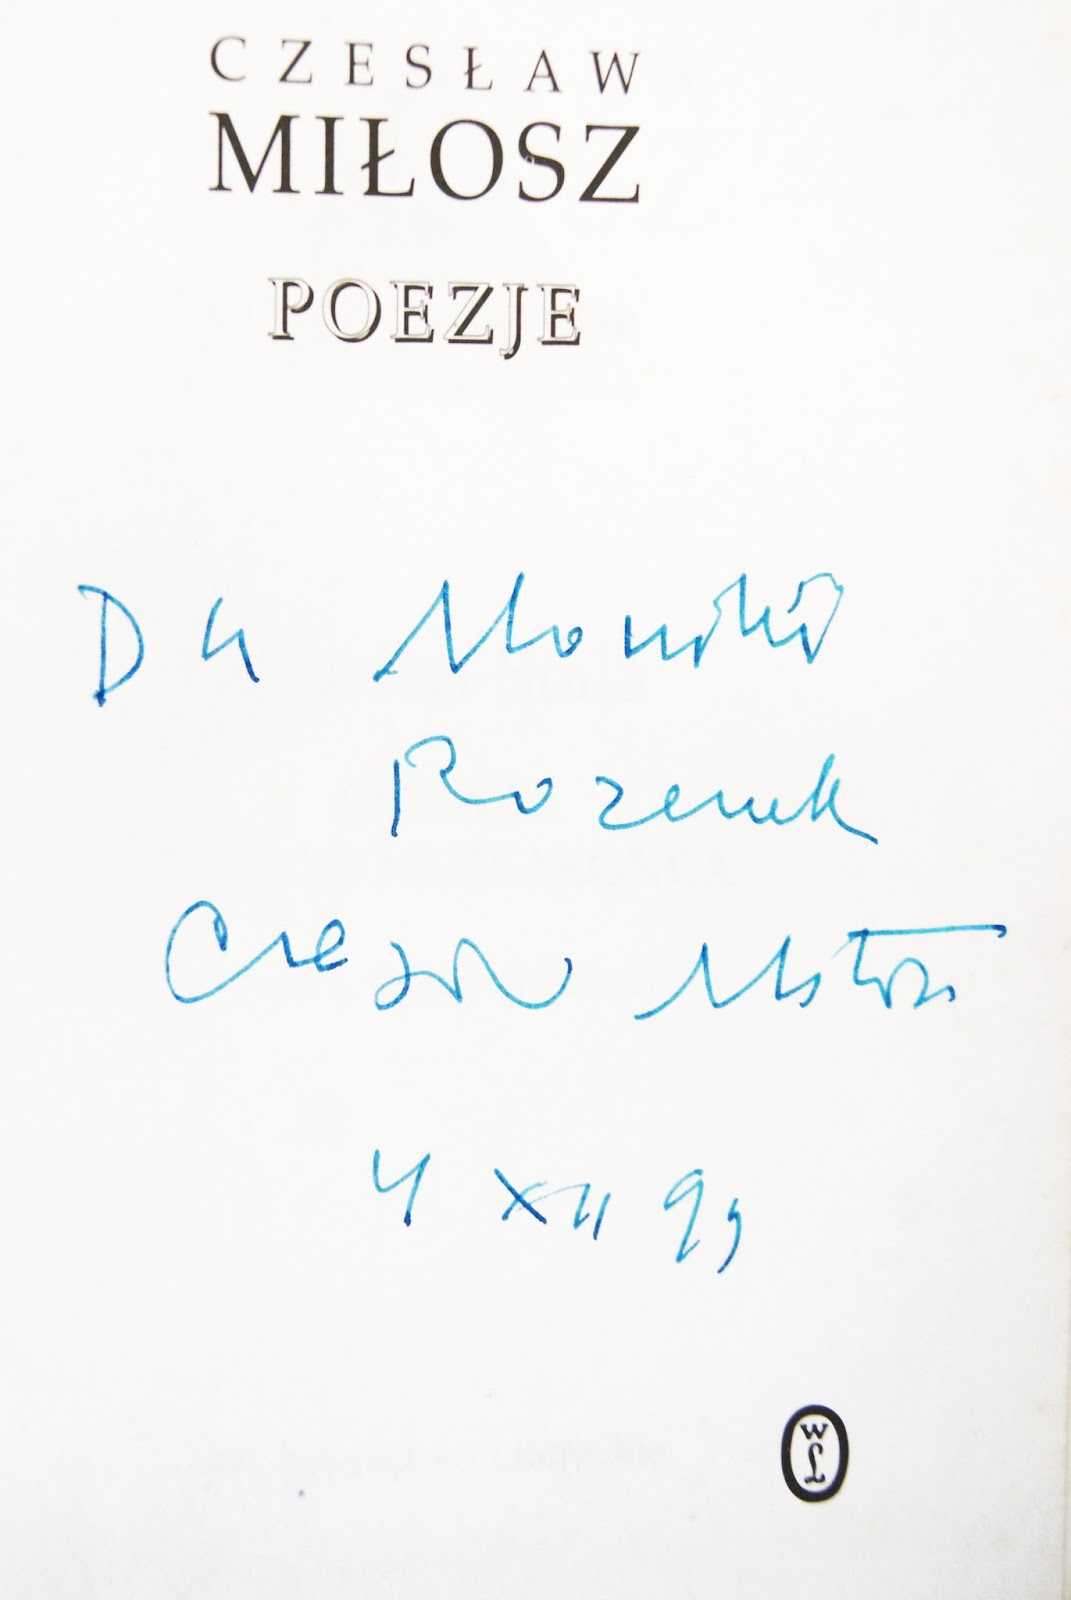 CZESŁAW
MIŁOSZ
POEZJE
Dla Moniki
Rozenek
Czesław Miłosz
4 XII 99
WL